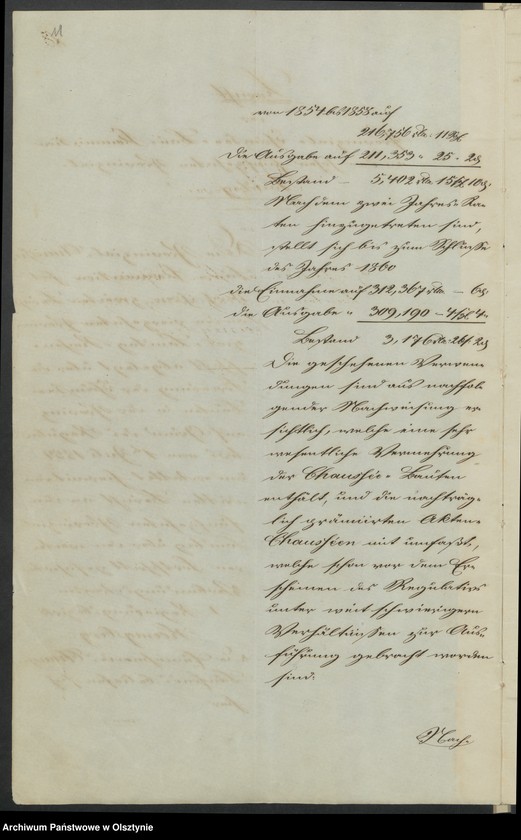 von 1854 bis 1858 auf
216,756 rtl. 11 Sg
die Ausgabe auf 211,353 " 25 - 2 d
Bestand - 5,402 rtl. 15 sg 10 d.
Nachdem zwei Jahres-Ra-
ten hinzugetreten sind,
stellt sich bis zum Schlusse
des Jahres 1860
die Einnahme auf 312,367 rtl. - 6 d.
die Ausgabe " 309,190 - 4 sg 4 "
Bestand 3,176 rtl. 26 sg 2 d
Die geschehenen Verwen-
dungen sind aus nachfol-
gender Nachweisung er-
sichtlich, welche eine sehr
wesentliche Vermehrung
der Chaussée-Bauten
enthält, und die nachträg-
lich prämiirten Aktien-
Chausséen mit umfaßt,
welche schon vor dem Er-
scheinen des Regulativs
unter weit schwierigern
Verhältnissen zur Aus-
führung gebracht worden
sind.
Nach-
Archiwum Państwowe w Olsztynie